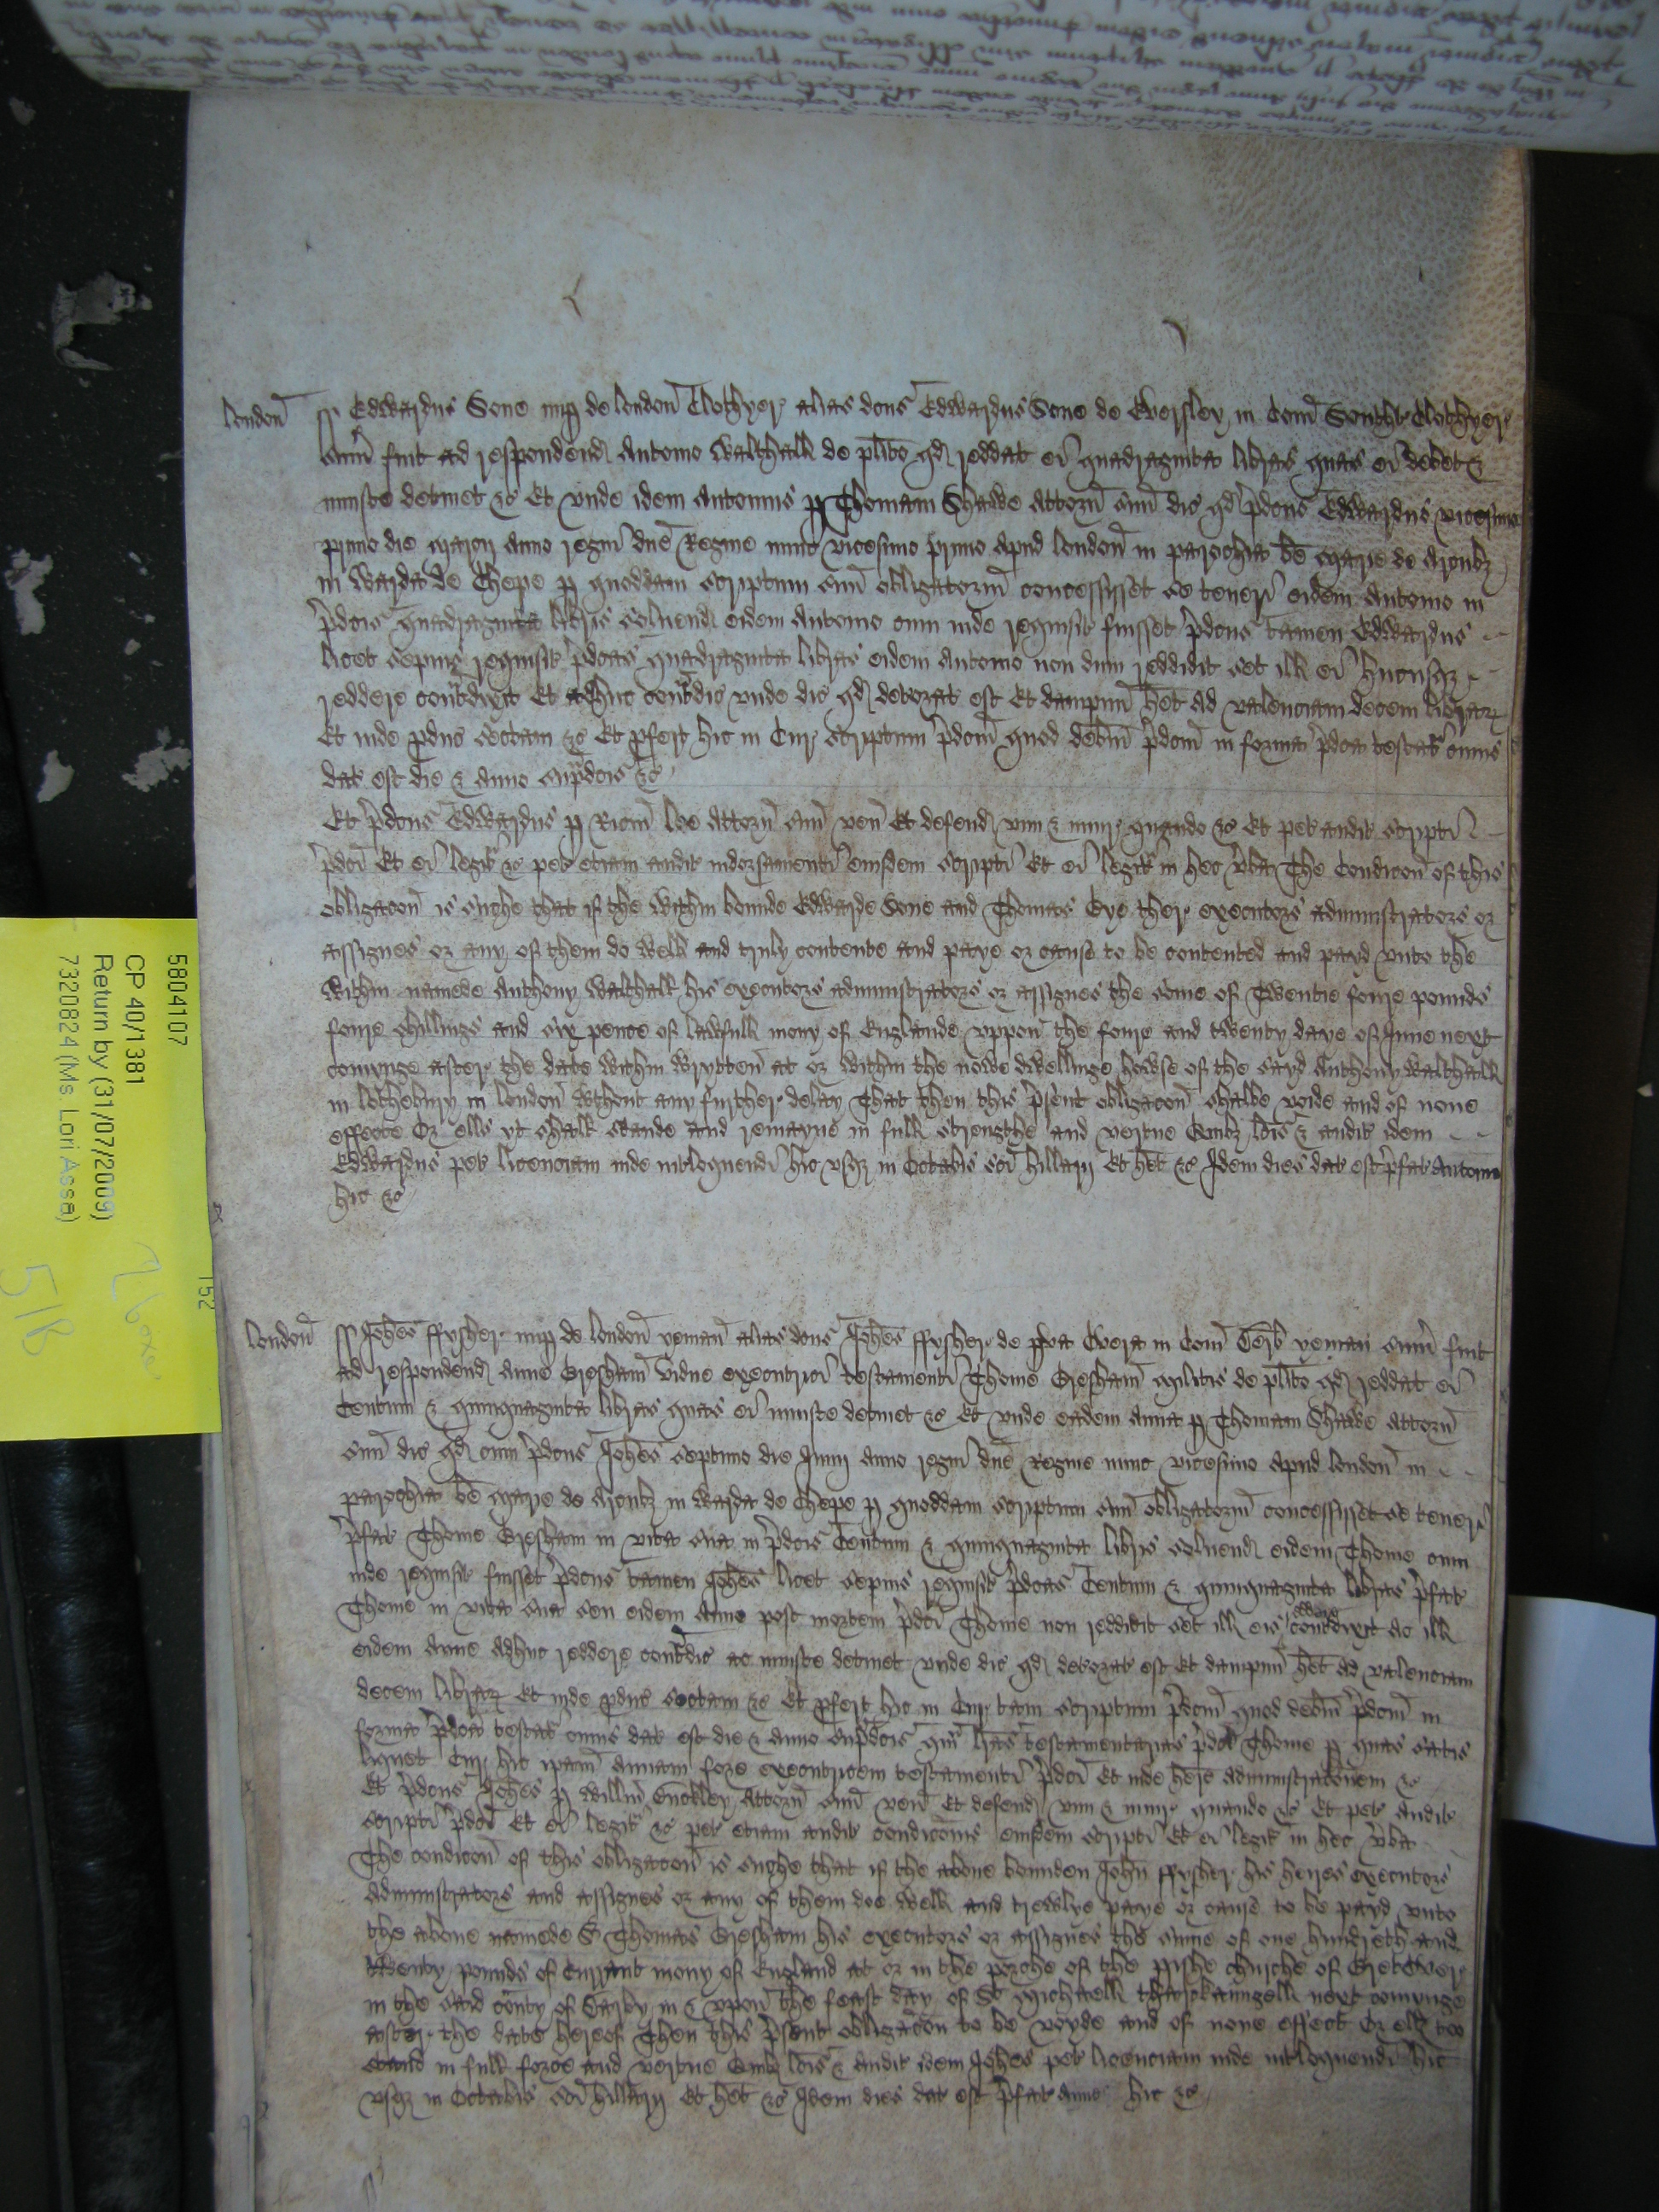 london̄ ss Edwardus Sone nup de london̄ Clothyer alias dcūs Edwardus Sone de Eversley in Com̄ Sowth̄t Clothyer
sum̄ fuit ad respondend Antonio Walthall de pl̄ito qd reddat ei quadraginta libras quas ei debet &
iniuste detinet &c Et unde idem Antonius p Thomam Shawe attorn̄ suū dic qd p̄dcūs Edwardus vicesimo
primo die Marcij anno regni dn̄e Regine nunc vicesimo primo apud london̄ in parochia bē Marie de Arcubȝ
in Warda de Chepe p quoddam scriptum suū obligatoriū concessisset se teneri eidem Antonio in
p̄dcis quadraginta libris solvend eidem Antonio cum inde requisit fuisset p̄dcūs tamen Edwardus
licet sepius requisit p̄dcas quadraginta libras eidem Antonio non dum reddidit set ill ei hucusqȝ
reddere cont̄dixit Et adhuc cont̄dic unde dic qd deteriorat est Et dampnū h̄et ad valenciam decem librar
Et inde pduc sectam &c Et pfert hic in Cur scriptum p̄dcm̄ quod debit̄m p̄dcm̄ in forma p̄dca testat̄ cuius
dat est die & anno sup̄dcis &c
Et p̄dcūs Edwardus p Ricm̄ lee attorn̄ suū ven̄ Et defend vim & iniur quando &c Et pet audit scripti
p̄dci Et ei legit̄ &c pet eciam audit indorsamenti eiusdem scripti Et ei legit̄ in hec v̄ba The Condicon̄ of this
obligacon̄ is suche that if the within bounde Edwarde Sone and Thomas Eve ther executors administrators or
assignes or any of them do well and truly contente and paye or cause to be contented and payd unto the
within namede Anthony Walthall his executors administrators or assignes the some of Twentie foure pounds
foure shillings and six pence of lawfull mony of Englande uppon the foure and twenty daye of June next
comynge after the date within wrytten̄ at or within the nowe dwellinge howse of the sayd Anthony Walthall
in lothebury in london̄ w̄thout any further delay That then this p̄sent obligacon̄ shalbe voide and of none
effecte Or ells yt shall stande and remayne in full strengthe and vertue Quibȝ l̄cis & audit idem
Edwardus pet licenciam inde int̄loquendi hic usqȝ in Octabis sci Hillarij Et h̄et &c Idem dies dat est p̄fat Antonio
hic &c
london̄ ss Joh̄es ffysher nup de london̄ yeman̄ alias dcūs Joh̄es ffysher de pva Overa in Com̄ Derb yeman sum̄ fuit
ad respondend Anne Gresham̄ vidue executrici testamenti Thome Gresham̄ Militis de pl̄ito qd reddat ei
Centum & quinquaginta libras quas ei iniuste detinet &c Et unde eadem Anna p Thomam Shawe attorn̄
suū dic qd cum p̄dcūs Joh̄es septimo die Junij anno regni dn̄e Regine nunc vicesimo apud london̄ in
parochia bē Marie de Arcubȝ in Warda de Chepe p quoddam scriptum suū obligatoriū concessisset se teneri
p̄fat Thome Gresham in vita sua in p̄dcis Centum & quinquaginta libris solvend eidem Thome cum
inde requisit fuisset p̄dcūs tamen Joh̄es licet sepius requisit p̄dcas Centum & quinquaginta libras p̄fat
Thome in vita sua seu eidem Anne post mortem p̄dci Thome non reddidit set ill eis reddere cont̄dixit ac ill
eidem Anne adhuc reddere cont̄dic ac iniuste detinet unde dic qd deteriorat est Et dampnū h̄et ad valenciam
decem librar Et inde pduc sectam &c Et pfert hic in Cur tam scriptum p̄dcm̄ quod debit̄m p̄dcm̄ in
forma p̄dca testat̄ cuius dat est die & anno sup̄dcis qm̄ l̄ras testamentarias p̄dci Thome p quas satis
liquet Cur hic ip̄am Annam fore executricem testamenti p̄dci Et inde h̄ere administracōem &c
Et p̄dcūs Joh̄es p Willm̄ attorn̄ suū ven̄ Et defend vim & iniur quando &c Et pet audit
scripti p̄dci Et ei legit̄ &c pet eciam audit condicōnis eiusdem scripti Et ei legit̄ in hec v̄ba
The condicon̄ of this obligacon̄ is suche that if the above bounden John̄ ffysher his heyres executors
administrators and assignes or any of them doe well and trewlye paye or cause to be payd unto
the above namede Sr Thomas Gresham his executors or assignes the sūme of one hundreth and
twenty pounds of currant mony of England at or in the porche of the pishe churche of
in the said county of Darby in & upon̄ the feast day of St Michaell tharchaungell next comynge
after the date hereof Then this p̄sent obligacōn to be voyde and of none effect Or ells to
stand in full force and vertue Quibȝ l̄cis & audit idem Joh̄es pet licenciam inde int̄loquendi hic
usqȝ in Octabis sci Hillarij Et h̄et &c Idem dies dat est p̄fat Anne hic &c
5804107
CP 40/1381
Return by (31/07/2009)
7320824 (Ms. Lori Assa)
152
518